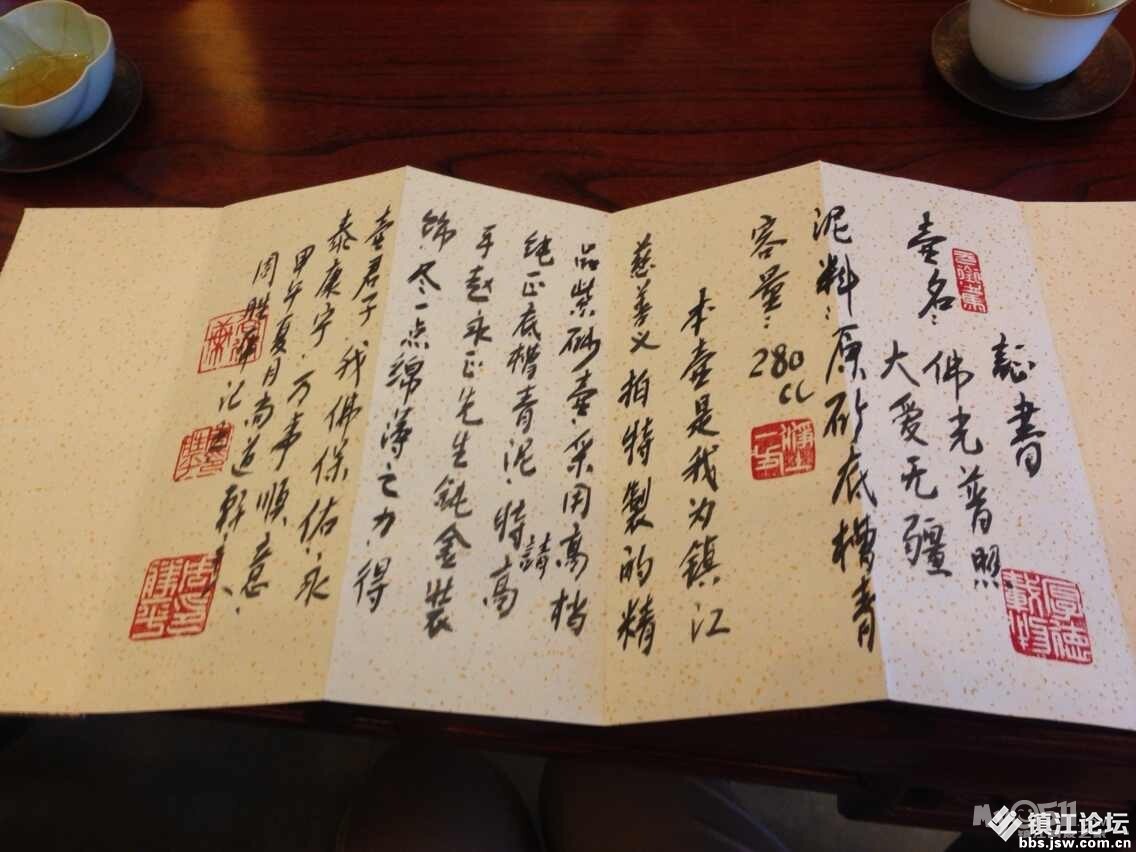 證書
壶名：佛光普照
大爱无疆
泥料：原矿底槽青
容量：280CC
本壶是我为鎮江
慈善义拍特製的精
品紫砂壶，采用高档
纯正底槽青泥，特請高
手赵永正先生純金装
饰，尽一点绵薄之力，得
壶君子，我佛保佑，永
泰康宁，万事順意.
甲午夏月尚道轩主
周胜华记
厚德载物
镇江论坛
bbs.jsw.com.cn